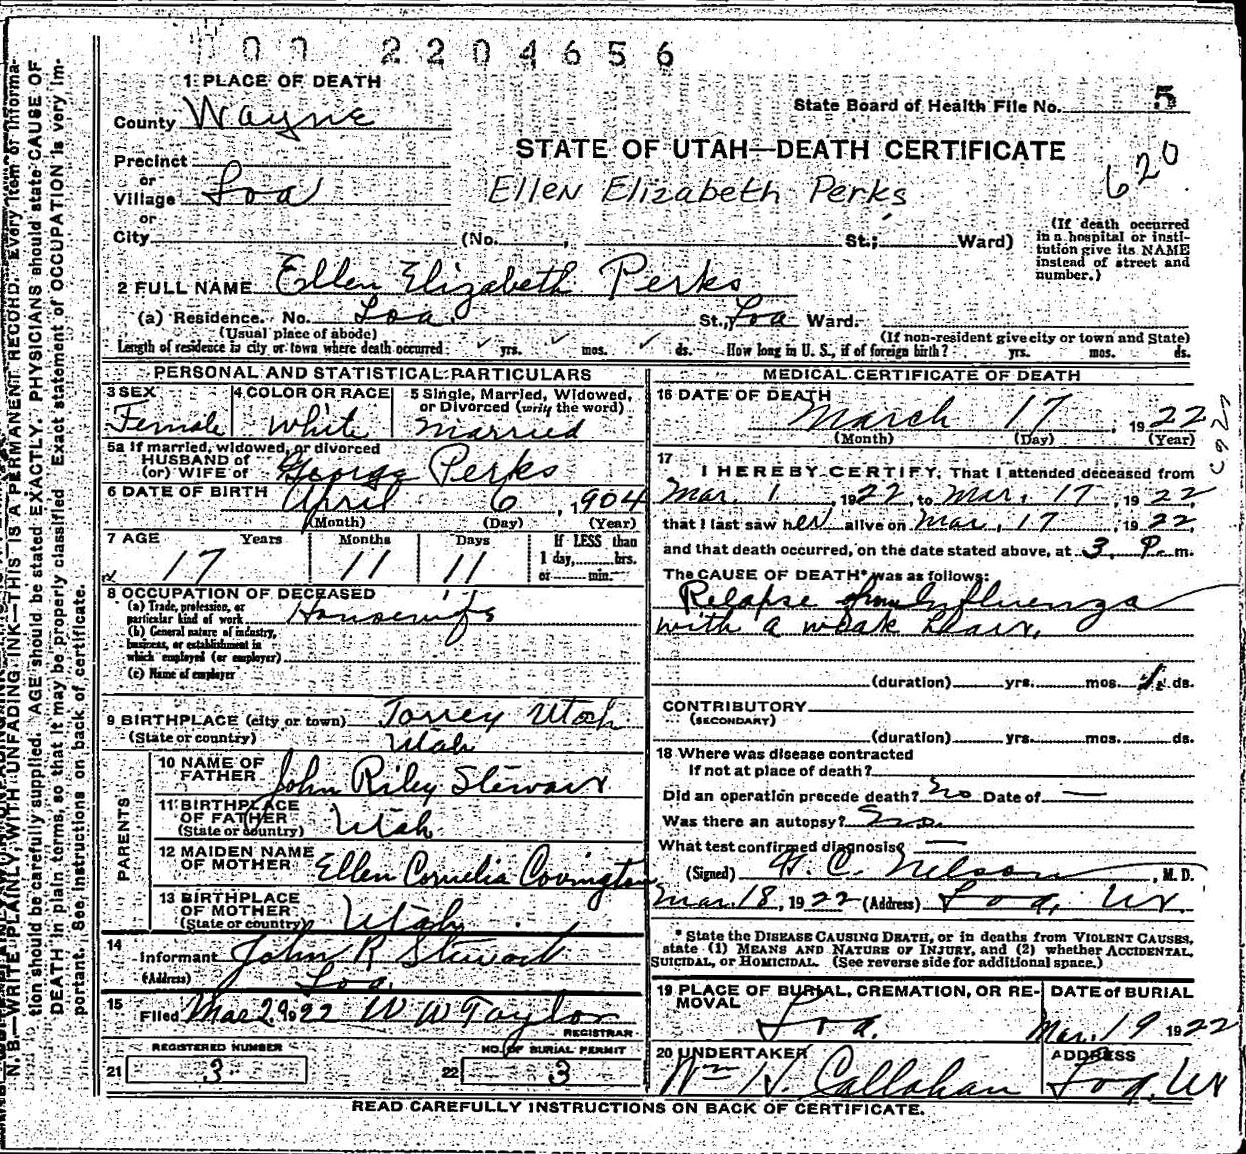 00 2204656
1 PLACE OF DEATH
County Wayne
State Board of Health File No. 5
STATE OF UTAH—DEATH CERTIFICATE
620
Precinct
or
Village Loa
Ellen Elizabeth Perks
or
City (No. , St.; Ward)
(If death occurred
in a hospital or insti-
tution give its NAME
instead of street and
number.)
2 FULL NAME Ellen Elizabeth Perks
(a) Residence. No. Loa. St., Loa Ward.
(Usual place of abode) (If non-resident give city or town and State)
Length of residence in city or town where death occurred yrs. mos. ds. How long in U. S., if of foreign birth? yrs. mos. ds.
PERSONAL AND STATISTICAL PARTICULARS
3 SEX 4 COLOR OR RACE 5 Single, Married, Widowed,
or Divorced (write the word)
Female White married
5a If married, widowed, or divorced
HUSBAND of
(or) WIFE of George Perks
6 DATE OF BIRTH April 6, 1904
(Month) (Day) (Year)
7 AGE Years Months Days If LESS than
1 day, hrs.
or min.
17 11 11
8 OCCUPATION OF DECEASED
(a) Trade, profession, or
particular kind of work Housewife
(b) General nature of industry,
business, or establishment in
which employed (or employer)
(c) Name of employer
9 BIRTHPLACE (city or town) Torrey Utah
(State or country) Utah
PARENTS
10 NAME OF
FATHER John Riley Stewart
11 BIRTHPLACE
OF FATHER
(State or country) Utah
12 MAIDEN NAME
OF MOTHER Ellen Cornelia Covington
13 BIRTHPLACE
OF MOTHER
(State or country) Utah
14
Informant John R Stewart
(Address) Loa
15
Filed Mar 29 1922 W W Taylor
REGISTRAR
REGISTERED NUMBER NO. OF BURIAL PERMIT
21 3 22 3
MEDICAL CERTIFICATE OF DEATH
16 DATE OF DEATH
March 17, 1922
(Month) (Day) (Year)
17
I HEREBY CERTIFY, That I attended deceased from
Mar. 1, 1922, to Mar. 17, 1922
that I last saw her alive on Mar, 17, 1922,
and that death occurred, on the date stated above, at 3 P. m.
The CAUSE OF DEATH* was as follows:
Relapse from Influenza
with a weak heart,
(duration) yrs. mos. ds.
CONTRIBUTORY
(SECONDARY)
(duration) yrs. mos. ds.
18 Where was disease contracted
If not at place of death?
Did an operation precede death? No Date of —
Was there an autopsy? No.
What test confirmed diagnosis —
(Signed) C. Nelson, M. D.
Mar. 18, 1922 (Address) Loa, Ut.
* State the DISEASE CAUSING DEATH, or in deaths from VIOLENT CAUSES,
state (1) MEANS AND NATURE OF INJURY, and (2) whether ACCIDENTAL,
SUICIDAL, or HOMICIDAL. (See reverse side for additional space.)
19 PLACE OF BURIAL, CREMATION, OR RE-
MOVAL DATE of BURIAL
Loa. Mar. 19 1922
20 UNDERTAKER ADDRESS
Wm H. Callahan Loa, Ut
READ CAREFULLY INSTRUCTIONS ON BACK OF CERTIFICATE.
N. B.—WRITE PLAINLY, WITH UNFADING INK—THIS IS A PERMANENT RECORD. Every item of informa-
tion should be carefully supplied. AGE should be stated EXACTLY. PHYSICIANS should state CAUSE OF
DEATH in plain terms, so that it may be properly classified. Exact statement of OCCUPATION is very im-
portant. See instructions on back of certificate.